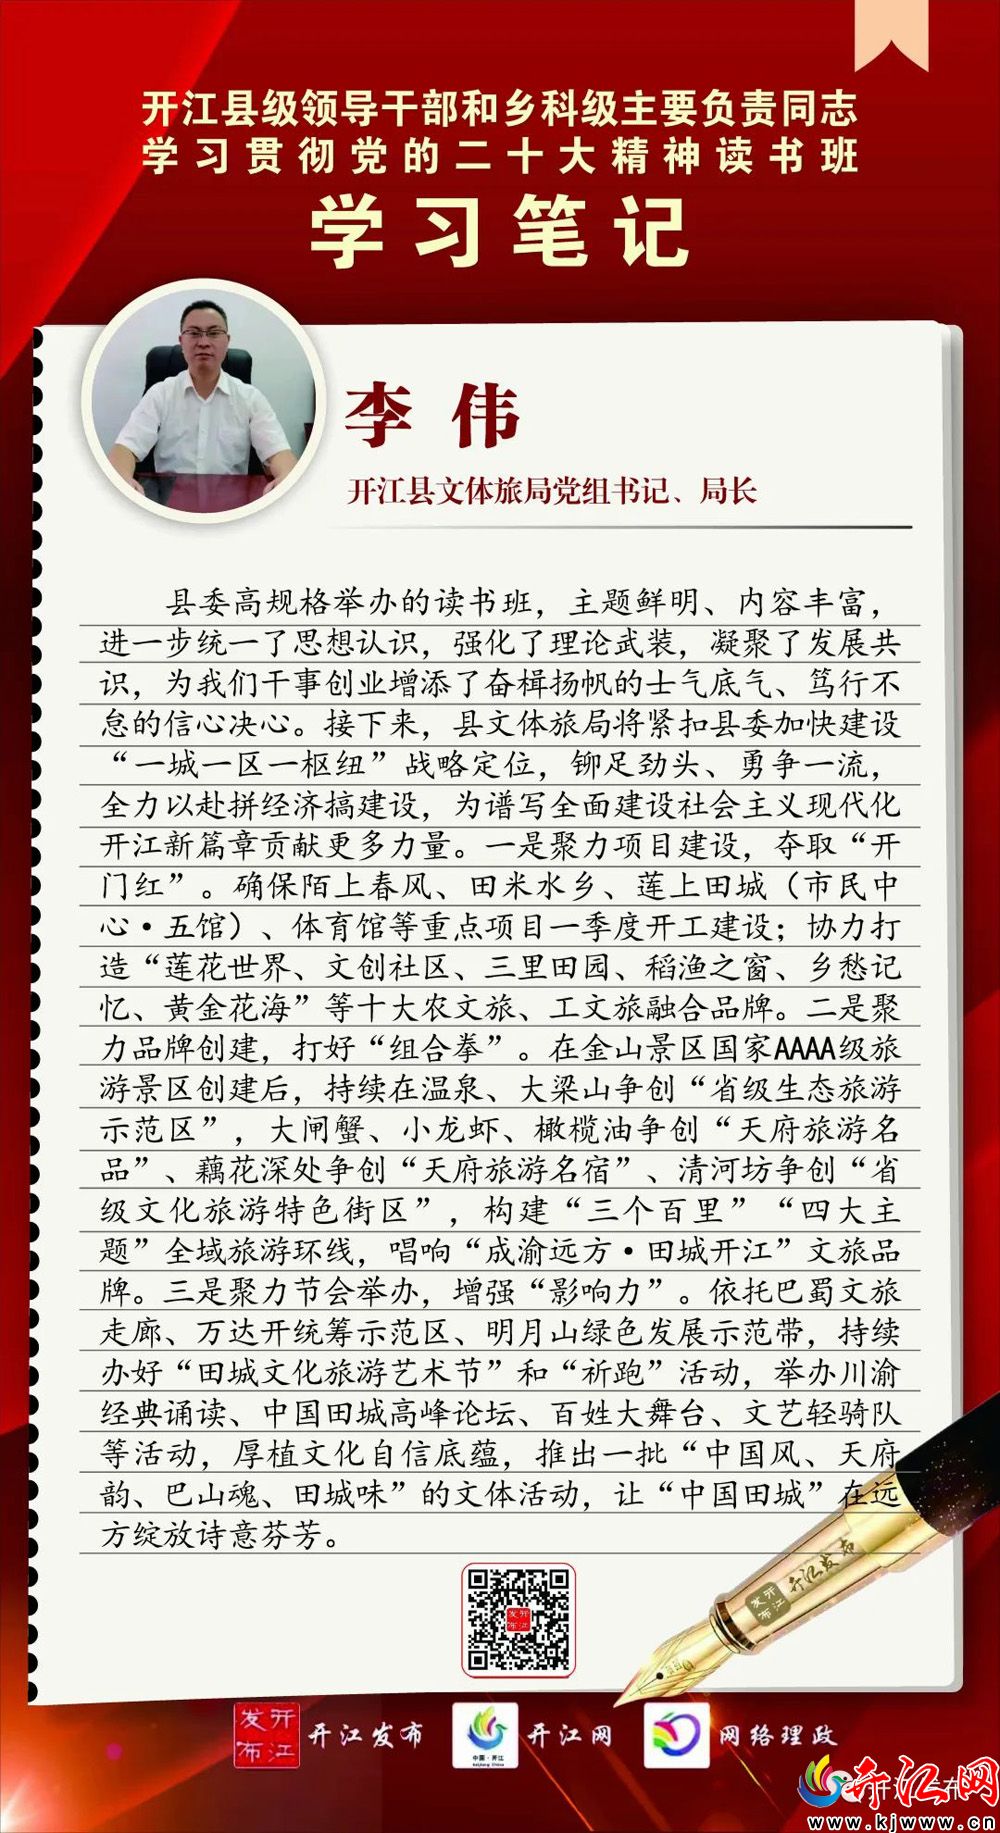 开江县级领导干部和乡科级主要负责同志
学习贯彻党的二十大精神读书班
学习笔记
李 伟
开江县文体旅局党组书记、局长
县委高规格举办的读书班，主题鲜明、内容丰富，
进一步统一了思想认识，强化了理论武装，凝聚了发展共
识，为我们干事创业增添了奋楫扬帆的士气底气、笃行不
怠的信心决心。接下来，县文体旅局将紧扣县委加快建设
“一城一区一枢纽”战略定位，铆足劲头、勇争一流，
全力以赴拼经济搞建设，为谱写全面建设社会主义现代化
开江新篇章贡献更多力量。一是聚力项目建设，夺取“开
门红”。确保陌上春风、田米水乡、莲上田城（市民中
心·五馆）、体育馆等重点项目一季度开工建设；协力打
造“莲花世界、文创社区、三里田园、稻渔之窗、乡愁记
忆、黄金花海”等十大农文旅、工文旅融合品牌。二是聚
力品牌创建，打好“组合拳”。在金山景区国家AAAA级旅
游景区创建后，持续在温泉、大梁山争创“省级生态旅游
示范区”，大闸蟹、小龙虾、橄榄油争创“天府旅游名
品”、藕花深处争创“天府旅游名宿”、清河坊争创“省
级文化旅游特色街区”，构建“三个百里”“四大主
题”全域旅游环线，唱响“成渝远方·田城开江”文旅品
牌。三是聚力节会举办，增强“影响力”。依托巴蜀文旅
走廊、万达开统筹示范区、明月山绿色发展示范带，持续
办好“田城文化旅游艺术节”和“祈跑”活动，举办川渝
经典诵读、中国田城高峰论坛、百姓大舞台、文艺轻骑队
等活动，厚植文化自信底蕴，推出一批“中国风、天府
韵、巴山魂、田城味”的文体活动，让“中国田城”在远
方绽放诗意芬芳。
开江发布
开江
发布
开江
发布
开江发布
中国·开江
开江网
网络理政
开江网
www.kjwww.cn